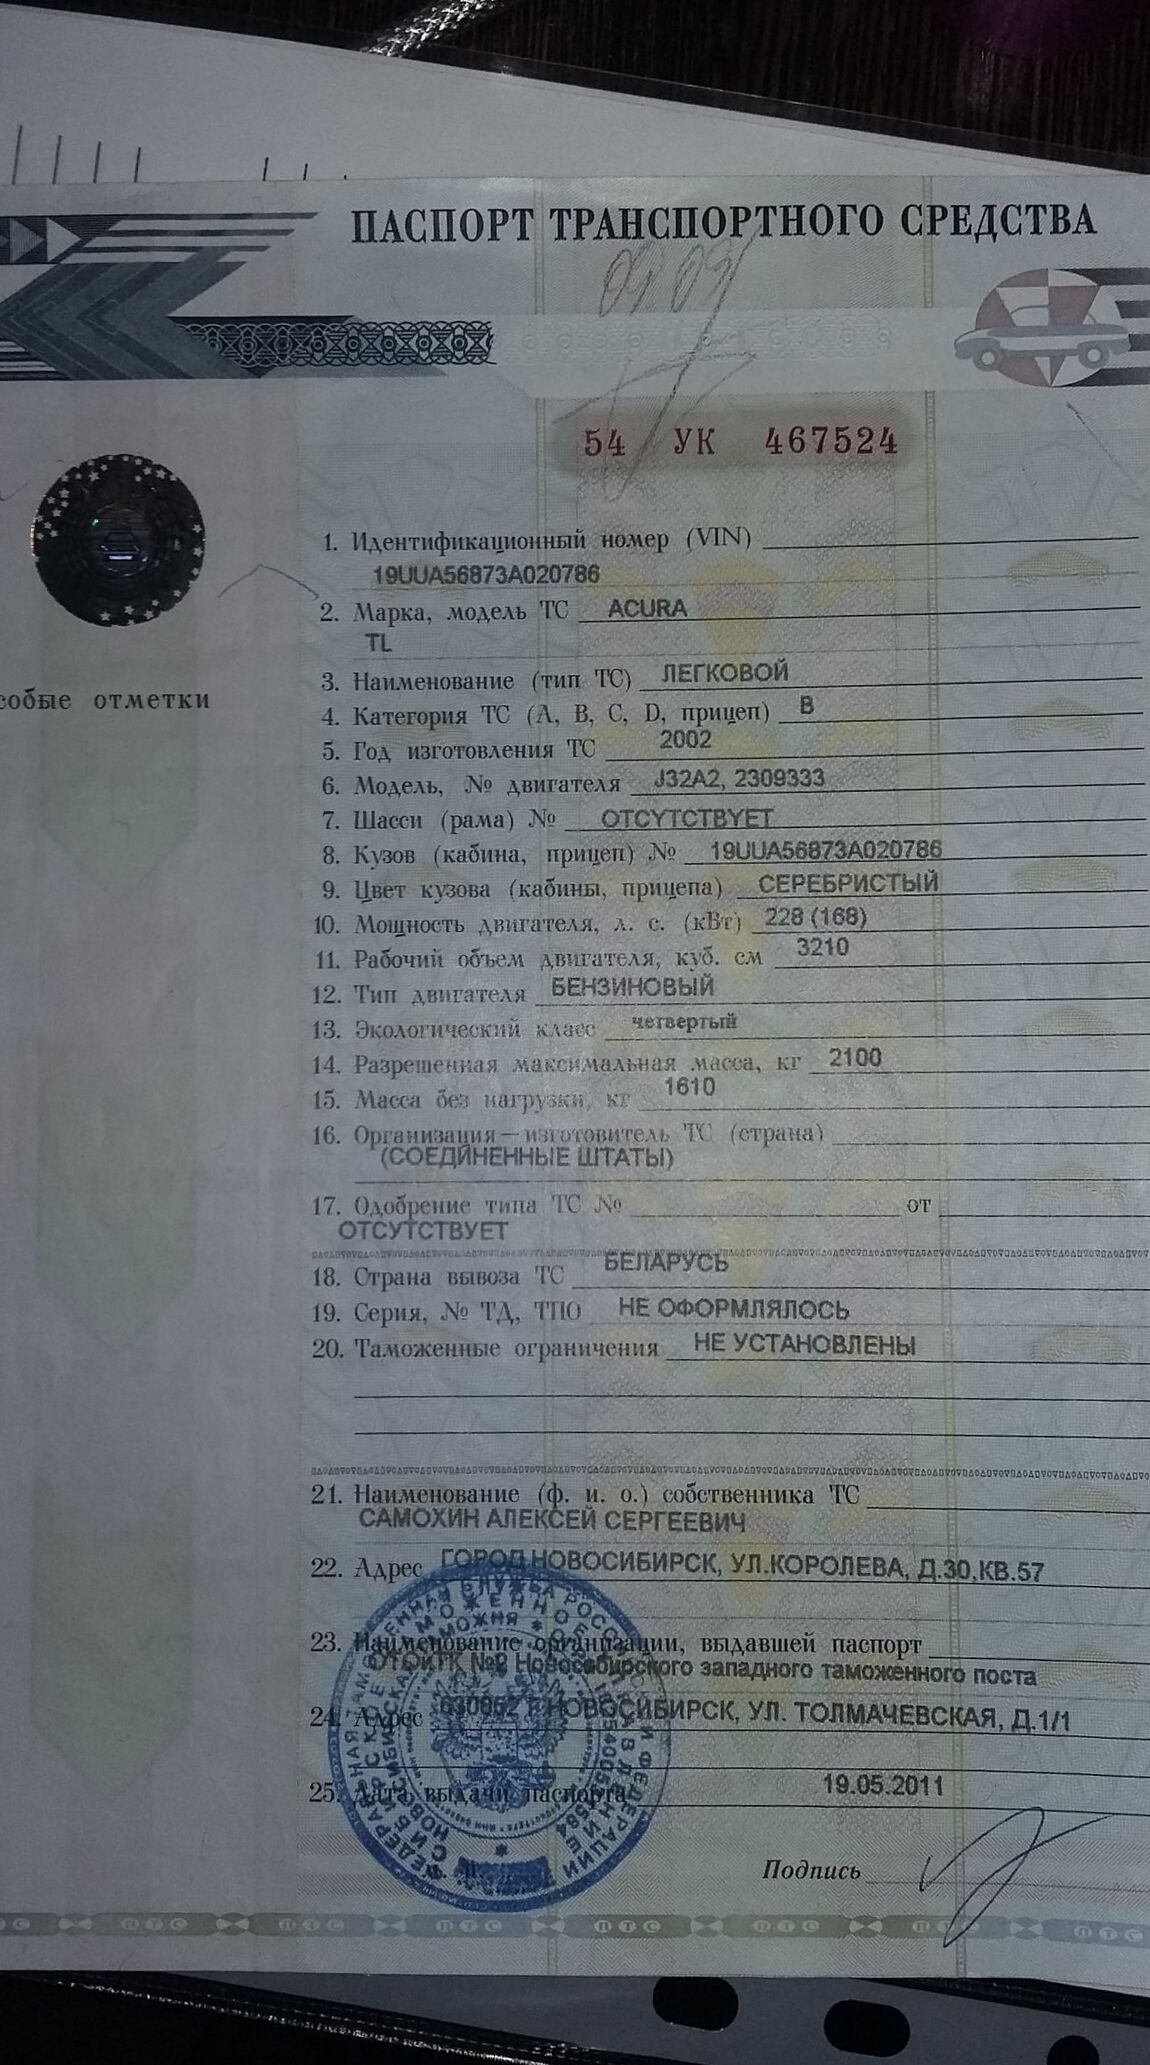 ПАСПОРТ ТРАНСПОРТНОГО СРЕДСТВА
54 УК 467524
собые отметки
1. Идентификационный номер (VIN)
19UUA56873A020786
2. Марка, модель ТС ACURA
TL
3. Наименование (тип ТС) ЛЕГКОВОЙ
4. Категория ТС (A, B, C, D, прицеп) B
5. Год изготовления ТС 2002
6. Модель, № двигателя J32A2, 2309333
7. Шасси (рама) № ОТСУТСТВУЕТ
8. Кузов (кабина, прицеп) № 19UUA56873A020786
9. Цвет кузова (кабины, прицепа) СЕРЕБРИСТЫЙ
10. Мощность двигателя, л. с. (кВт) 228 (168)
11. Рабочий объем двигателя, куб. см 3210
12. Тип двигателя БЕНЗИНОВЫЙ
13. Экологический класс четвертый
14. Разрешенная максимальная масса, кг 2100
15. Масса без нагрузки, кг 1610
16. Организация—изготовитель ТС (страна)
(СОЕДИНЕННЫЕ ШТАТЫ)
17. Одобрение типа ТС № от
ОТСУТСТВУЕТ
18. Страна вывоза ТС БЕЛАРУСЬ
19. Серия, № ТД, ТПО НЕ ОФОРМЛЯЛОСЬ
20. Таможенные ограничения НЕ УСТАНОВЛЕНЫ
21. Наименование (ф. и. о.) собственника ТС
САМОХИН АЛЕКСЕЙ СЕРГЕЕВИЧ
22. Адрес ГОРОД НОВОСИБИРСК, УЛ.КОРОЛЕВА, Д.30,КВ.57
23. Наименование организации, выдавшей паспорт
ОТОиТК №2 Новосибирского западного таможенного поста
24. Адрес Г НОВОСИБИРСК, УЛ. ТОЛМАЧЕВСКАЯ, Д.1/1
25. Дата выдачи паспорта 19.05.2011
Подпись
ПТС ПТС ПТС ПТС ПТС ПТС